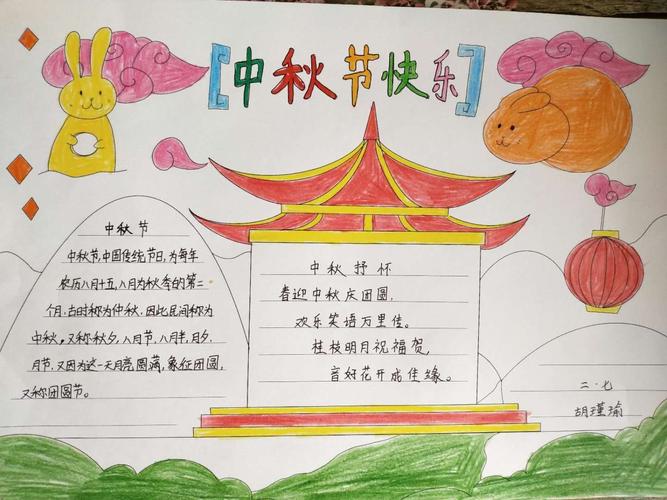 [中秋节快乐]
中秋节
中秋节,中国传统节日,为每年
农历八月十五,八月为秋季的第二
个月.古时称为仲秋,因此民间称为
中秋,又称秋夕,八月节,八月半,月夕,
月节,又因为这一天月亮圆满,象征团圆,
又称团圆节。
中秋抒怀
喜迎中秋庆团圆,
欢乐笑语万里传。
桂枝明月祝福贺,
言好花开成佳缘。
二·七
胡瑾瑜